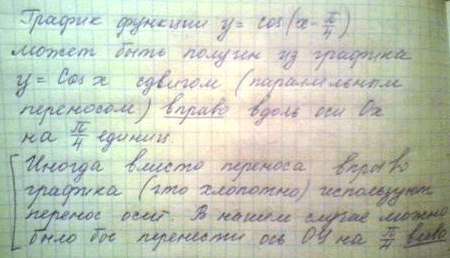 График функции y = cos(x - π/4)
может быть получен из графика
y = Cos x сдвигом (параллельным
переносом) вправо вдоль оси Ox
на π/4 единиц.
Иногда вместо переноса вправо
графика (что хлопотно) используют
перенос осей. В нашем случае можно
было бы перенести ось OY на π/4 влево